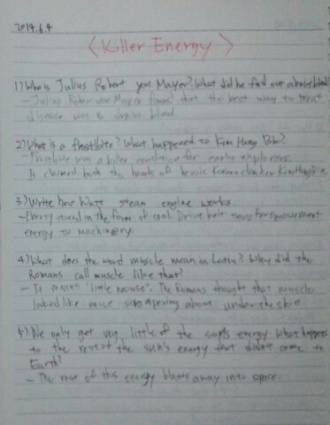 2014.6.4
<Killer Energy>
1) Who is Julius Robert von Mayer? What did he find out about blood?
- Julius Robert von Mayer found that the best way to treat
disease was to drain blood.
2) What is a frostbite? What happened to Kim Hong Bin?
- Frostbite was a killer for early explorers.
It claimed both the hands of heroic Korean climber Kim Hong Bin.
3) Write how steam engine works.
- Energy stored in the form of coal
energy to machinery.
4) What does the word muscle mean in Latin? Why did the
Romans call muscle like that?
- It means "little mouse". The Romans thought that muscles
looked like mice scampering about under the skin
5) We only get very little of the sun's energy. What happens
to the rest of the sun's energy that doesn't come to
Earth?
- The rest of this energy blasts away into space.